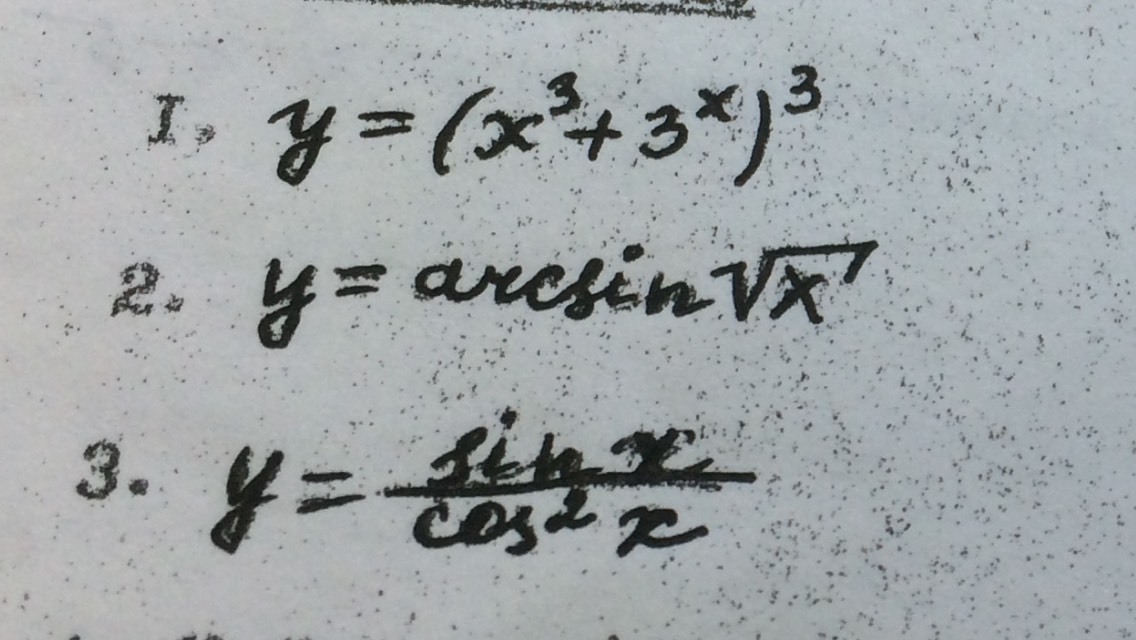 1. y = (x³ + 3ˣ)³
2. y = arcsin √x
3. y = sin x / cos² x